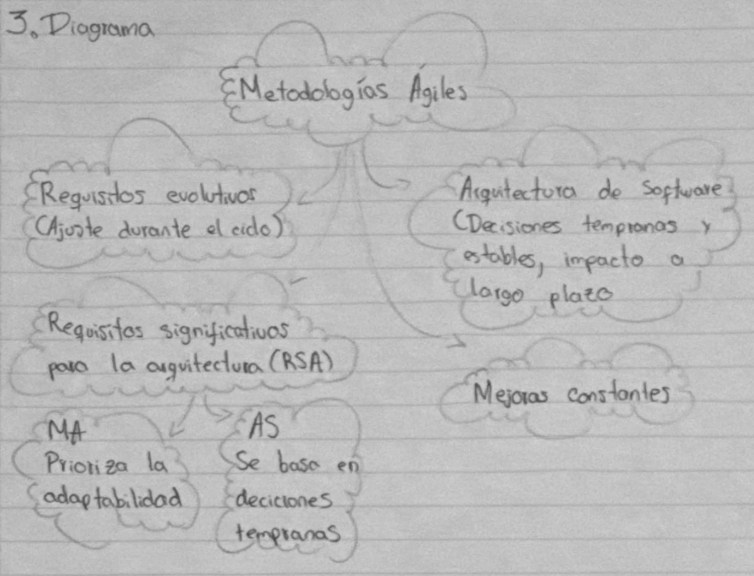 3. Diagrama
Metodologías Ágiles
Requisitos evolutivos
(Ajuste durante el ciclo)
Arquitectura de Software
(Decisiones tempranas y
estables, impacto a
largo plazo
Requisitos significativos
para la arquitectura (RSA)
Mejoras constantes
MA
Prioriza la
adaptabilidad
AS
Se basa en
deciciones
tempranas